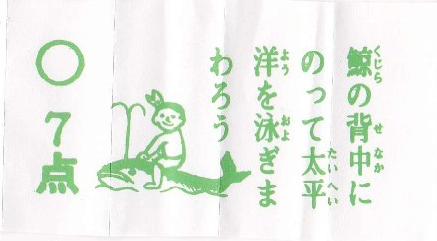 鯨の背中に
のって太平
洋を泳ぎま
わろう
○
7点